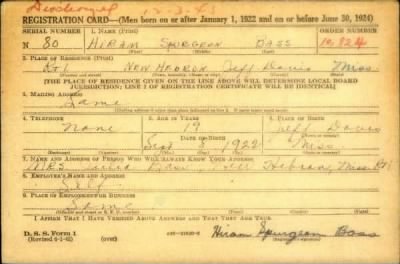 Discharged 12-3-43
REGISTRATION CARD—(Men born on or after January 1, 1922 and on or before June 30, 1924)
SERIAL NUMBER 1. NAME (Print) ORDER NUMBER
N 80 HIRAM SPURGEON BASS 10,824
2. PLACE OF RESIDENCE (Print)
Rt 1 NEW HEBRON Jeff Davis Miss
[THE PLACE OF RESIDENCE GIVEN ON THE LINE ABOVE WILL DETERMINE LOCAL BOARD
JURISDICTION; LINE 2 OF REGISTRATION CERTIFICATE WILL BE IDENTICAL]
3. MAILING ADDRESS
Same
4. TELEPHONE 5. AGE IN YEARS 6. PLACE OF BIRTH
None 19 Jeff Davis
DATE OF BIRTH
Sept 1922 Miss
7. NAME AND ADDRESS OF PERSON WHO WILL ALWAYS KNOW YOUR ADDRESS
MRS Bass, New Hebron, Miss Rt 1
8. EMPLOYER'S NAME AND ADDRESS
Self
9. PLACE OF EMPLOYMENT OR BUSINESS
Same
I AFFIRM THAT I HAVE VERIFIED ABOVE ANSWERS AND THAT THEY ARE TRUE.
D. S. S. Form 1
(Revised 6-1-42) (over) Hiram Spurgeon Bass